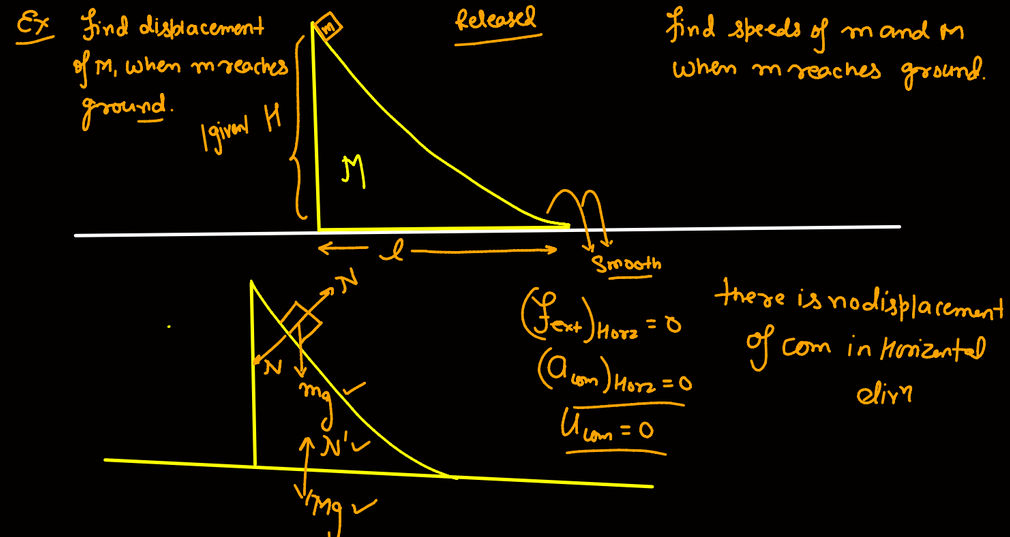 Ex find displacement
of M, when m reaches
ground.
Released
find speeds of m and M
when m reaches ground.
m
given H
M
l
Smooth
N
N
mg
N'
Mg
(fext)Horz = 0
(acom)Horz = 0
Ucom = 0
there is no displacement
of com in Horizental
dirn